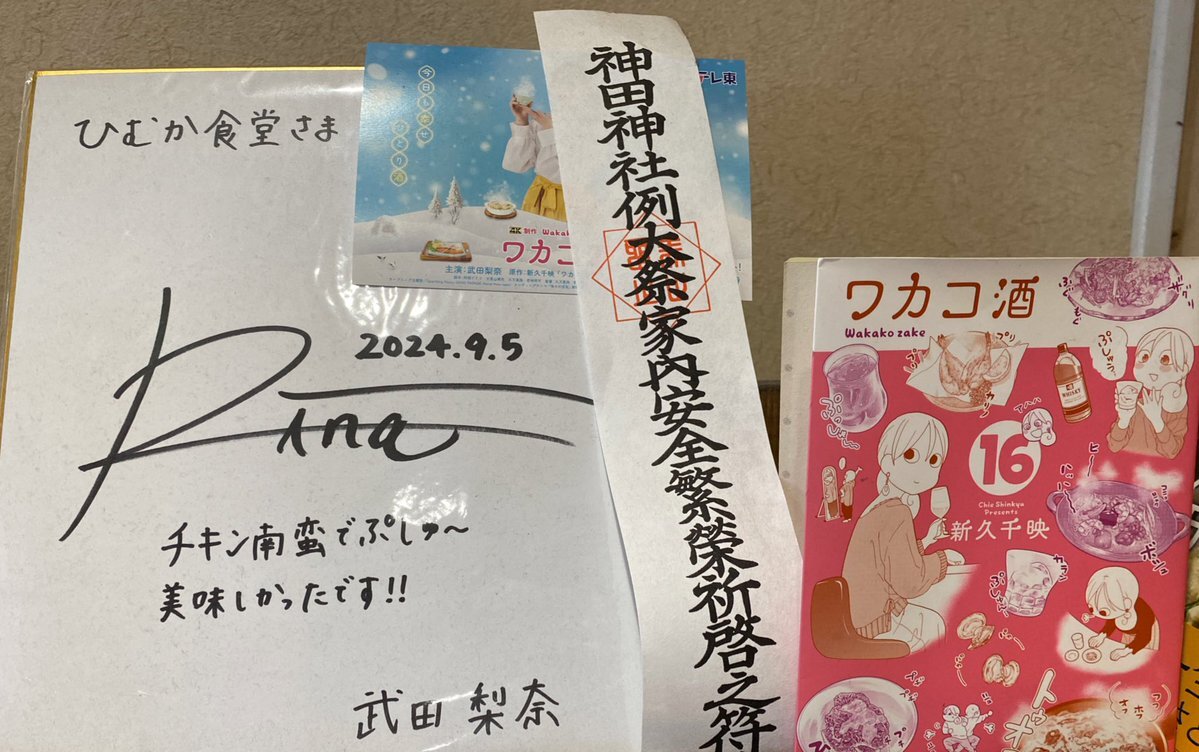 ひむか食堂さま
2024.9.5
Rina
チキン南蛮でぷしゅ〜
美味しかったです!!
武田梨奈
今日も幸せ
ひとり酒
テレ東
4K制作 Wakak
ワカコ
主演:武田梨奈 原作:新久千映「ワカ
神田神社例大祭家内安全繁榮祈啓之符
ワカコ酒
Wakako zake
もぐ
ザクリ
ぷしゅう
プリ
WHISKY
ぷしゅ〜
16
Chie Shinkya
Presents
新久千映
ヒー
カラン
ぷしゅー
じゅー
ホフ
ホラ